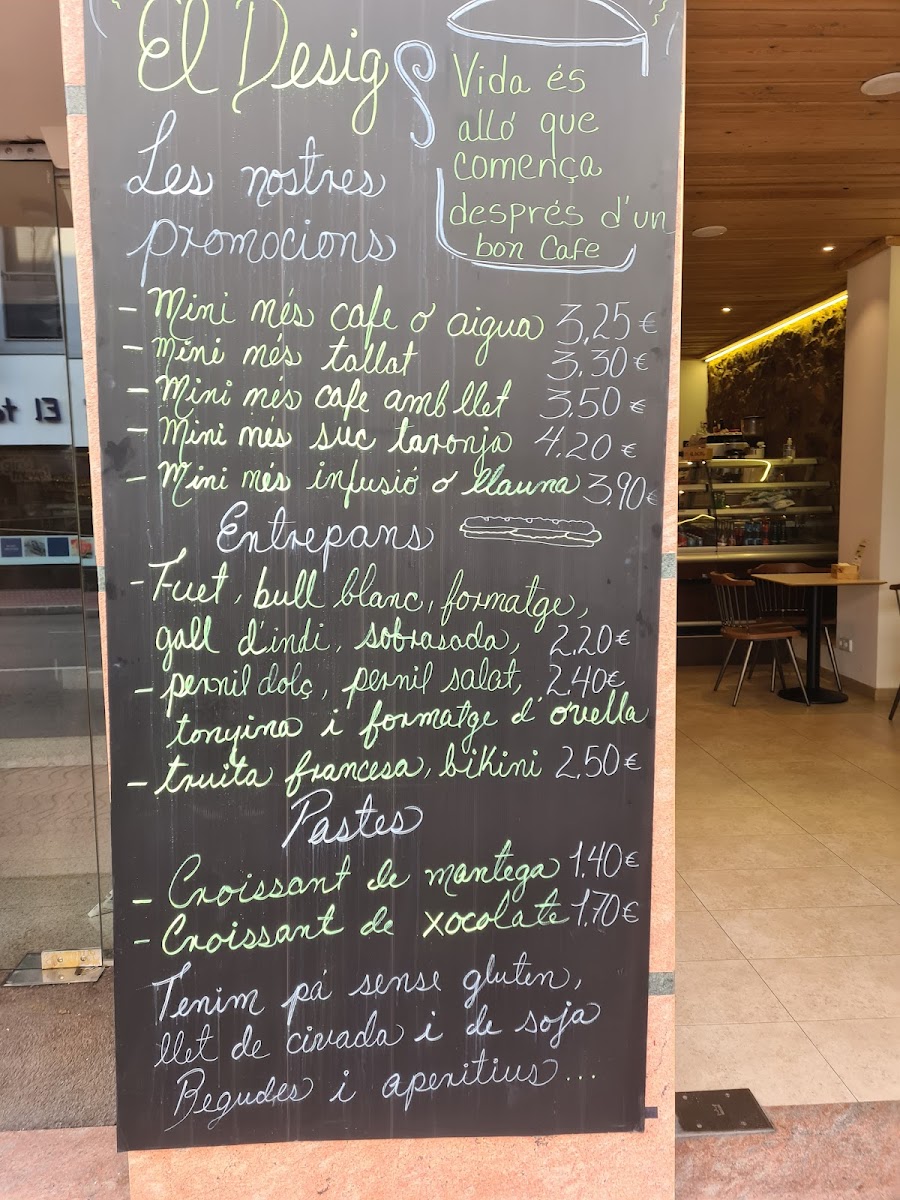 El Desig
Vida és
alló que
comença
després d'un
bon Cafe
Les nostres
promocions
- Mini més cafe o aigua 3,25 €
- mini més tallat 3.30 €
- Mini més cafe amb llet 3.50 €
- Mini més suc taronja 4.20 €
- Mini més infusió o llauna 3.90 €
Entrepans
- Fuet, bull blanc, formatge,
gall d'indi, sobrasada, 2.20 €
- pernil dolç, pernil salat, 2.40 €
tonyina i formatge d'ovella
- truita francesa, bikini 2.50 €
Pastes
- Croissant de mantega 1.40 €
- Croissant de xocolate 1.70 €
Tenim pá sense gluten,
llet de civada i de soja
Begudes i aperitius...